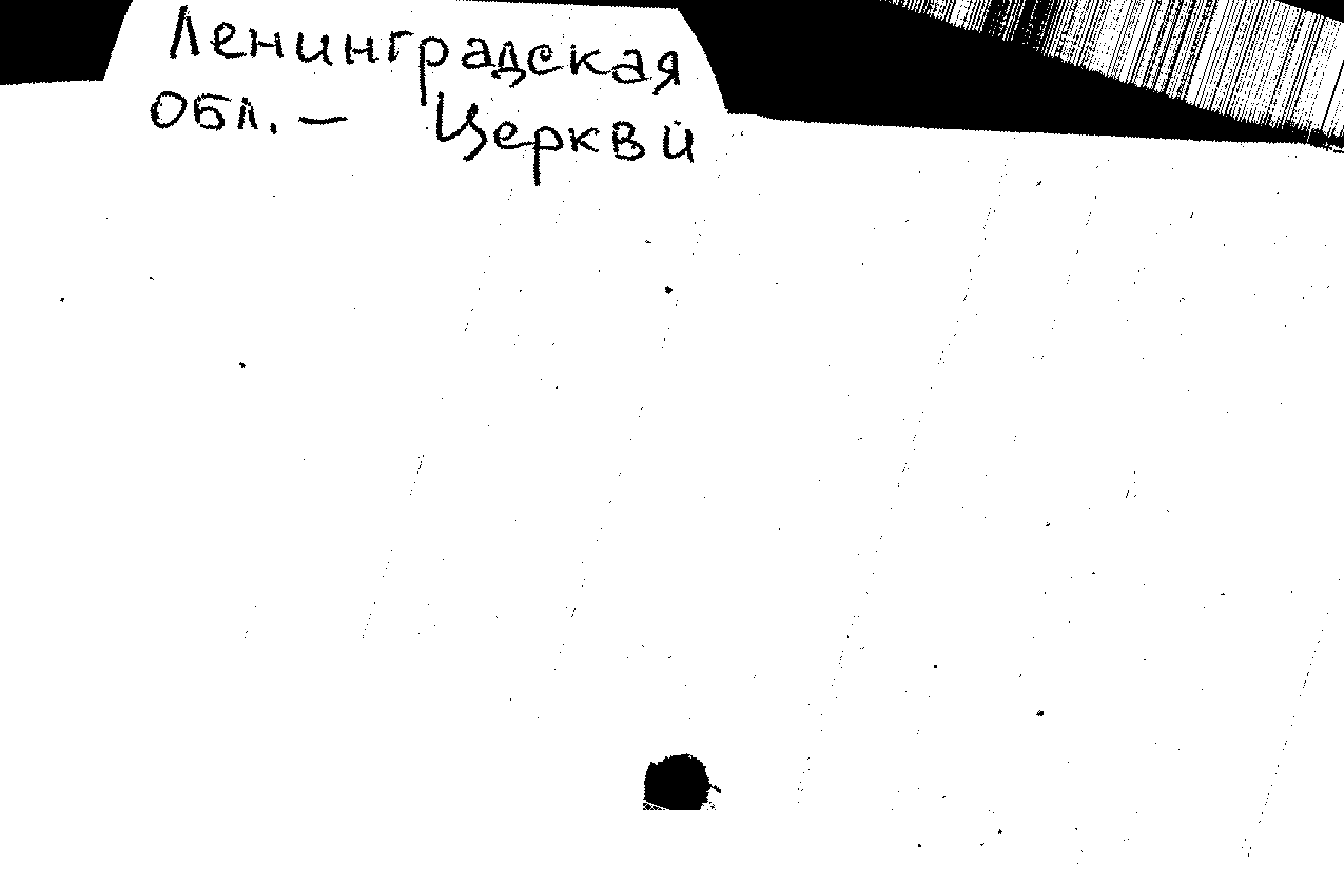 Ленинградская
Обл. — Церкви